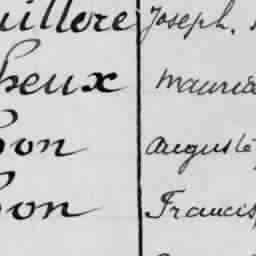 uillere Joseph,
heux Mauric
on Auguste
on Francis